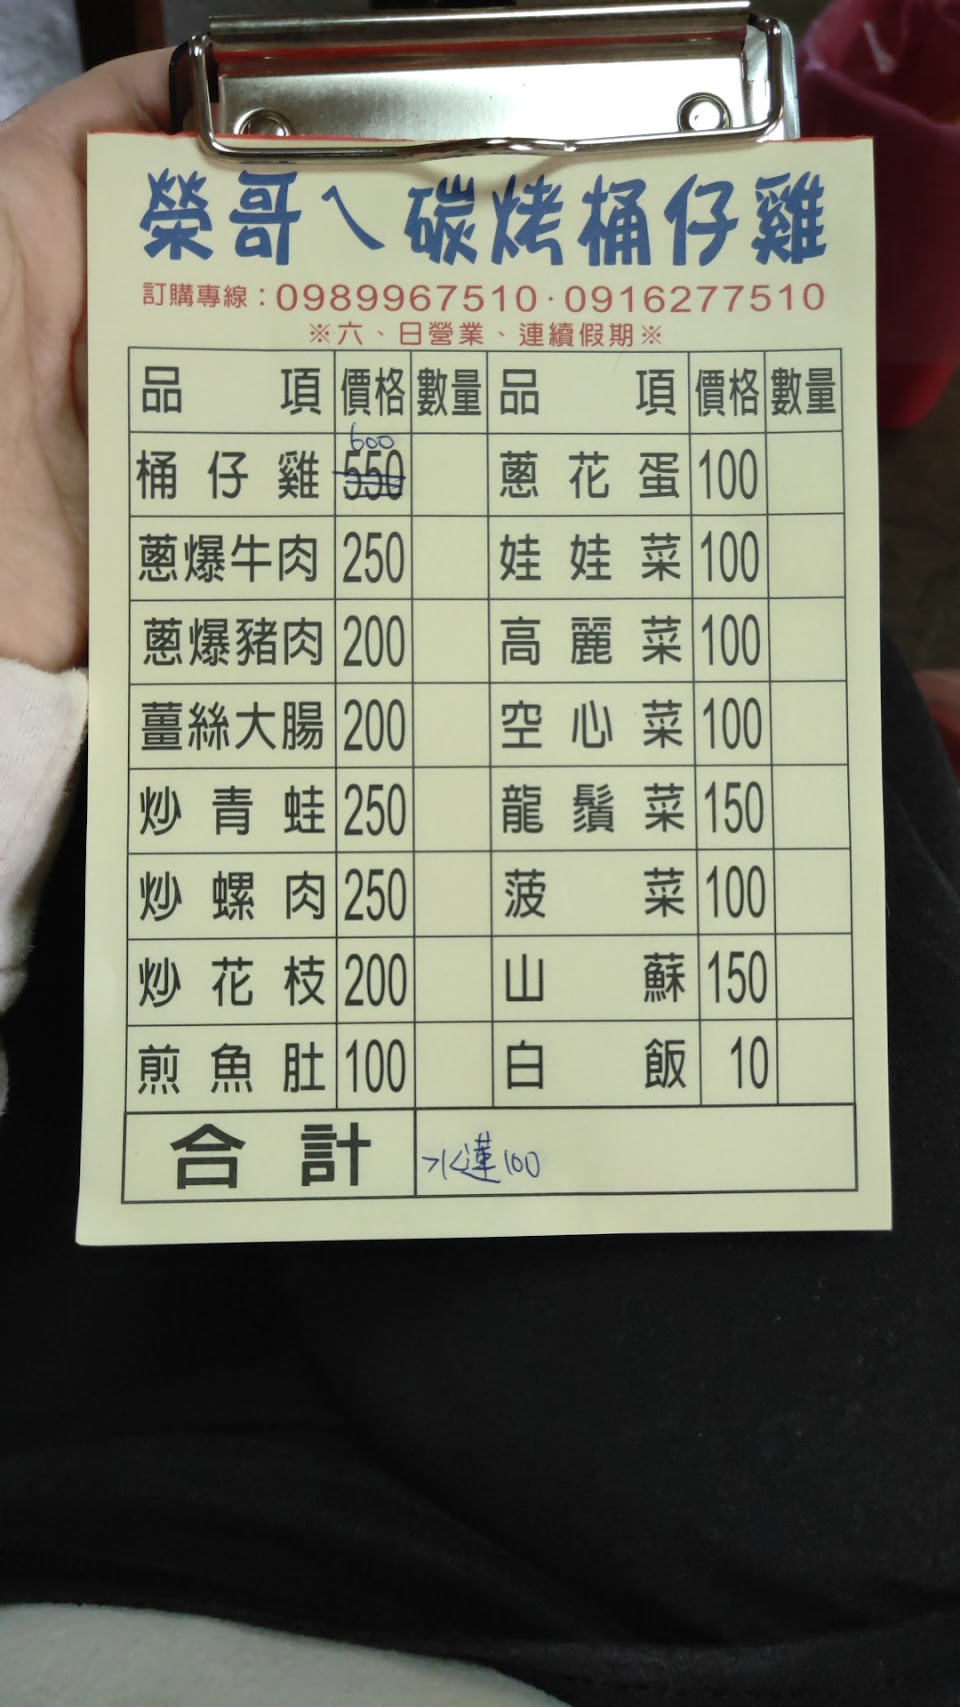 榮哥ㄟ碳烤桶仔雞
訂購專線：0989967510·0916277510
※六、日營業、連續假期※
品項 價格 數量 品項 價格 數量
桶仔雞 600 550 蔥花蛋 100
蔥爆牛肉 250 娃娃菜 100
蔥爆豬肉 200 高麗菜 100
薑絲大腸 200 空心菜 100
炒青蛙 250 龍鬚菜 150
炒螺肉 250 菠菜 100
炒花枝 200 山蘇 150
煎魚肚 100 白飯 10
合計 水蓮100